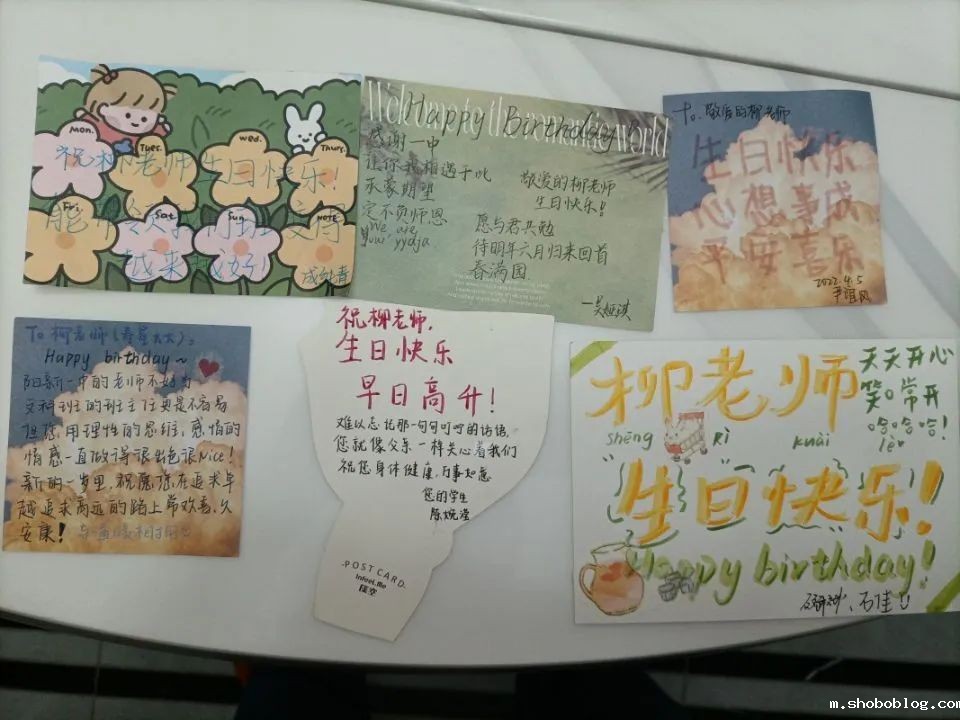 Mon.
Tues.
Wed.
Thurs.
祝柳老师生日快乐!
Fri.
Sat
Sun
NOTE
能带领
越来越好!
Welcome to the romantic world
Happy Birthday
感谢一中
让你我相遇于此
承蒙期望
定不负师恩
We are
your yyds
敬爱的柳老师
生日快乐!
愿与君共勉
待明年六月归来回首
春满园
—吴娅琪
to. 敬爱的柳老师
生日快乐
心想事成
平安喜乐
2022.4.5
To 柯老师(寿星大大):
Happy birthday~
阳新一中的老师不好当
文科班的班主任更是不容易
但您用理性的思维,感情的
情感一直做得很出色很Nice!
新的一岁里,祝愿您在追求卓
越追求高远的路上常欢喜,久
安康!
祝柳老师,
生日快乐
早日高升!
难以忘记那一句句叮咛的话语,
您就像父亲一样关心着我们
祝您身体健康,万事如意
您的学生
陈婉滢
·POSTCARD·
infeel.me
柳老师
天天开心
笑口常开
哈哈哈!
shēng rì kuài lè
生日快乐!
Happy birthday!
石佳
m.shoboblog.com